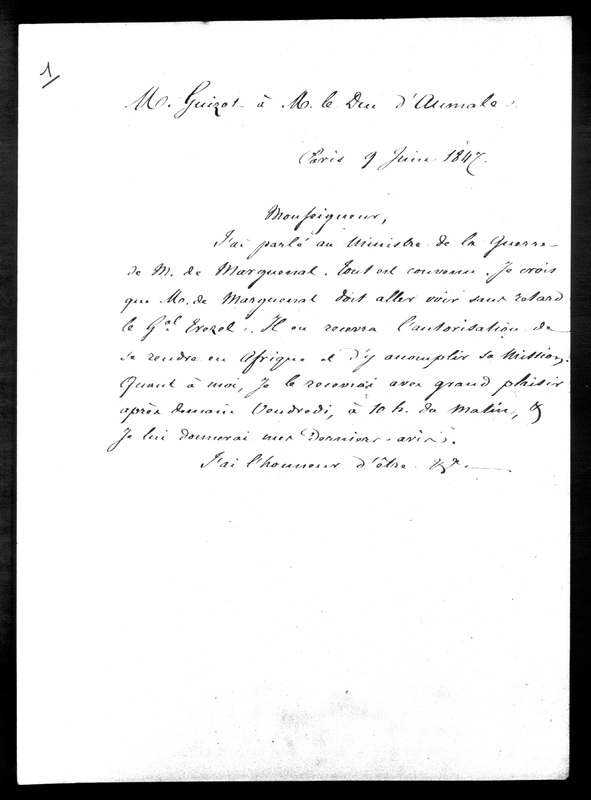 1/
M. Guizot à M. le Duc d'Aumale.
Paris 9 Juin 1847.
Monseigneur,
J'ai parlé au Ministre de la Guerre
de M. de Marquenat. Tout est convenu. Je crois
que M. de Marquenat doit aller voir sans retard
le Gal Trezel. Il en recevra l'autorisation de
se rendre en Afrique et d'y accomplir sa Mission.
Quant à moi, je le recevrai avec grand plaisir
après demain Vendredi, à 10 h. du Matin, &
Je lui donnerai mes derniers avis.
J'ai l'honneur d'être &a.